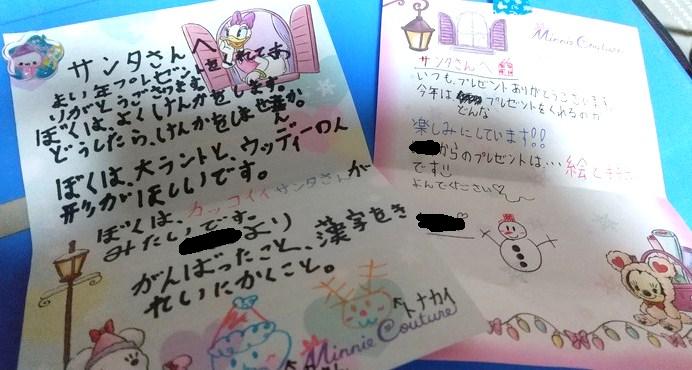 サンタさんへ
よい年プレゼントをくれてあ
りがとうございます
ぼくは、よくけんかをします。
どうしたら、けんかをしませんか。
ぼくは、大ラントと、ウッディーの人
形がほしいです。
ぼくは、カッコイイサンタさんが
みたいです。
より
がんばったこと、漢字をき
れいにかくこと。
トナカイ
Minnie Couture
Minnie Couture
サンタさんへ
いつも、プレゼントありがとうございます。
今年は プレゼントをくれるのか
どんな
楽しみにしています!!
からのプレゼントは...絵と
です!!
よんでください